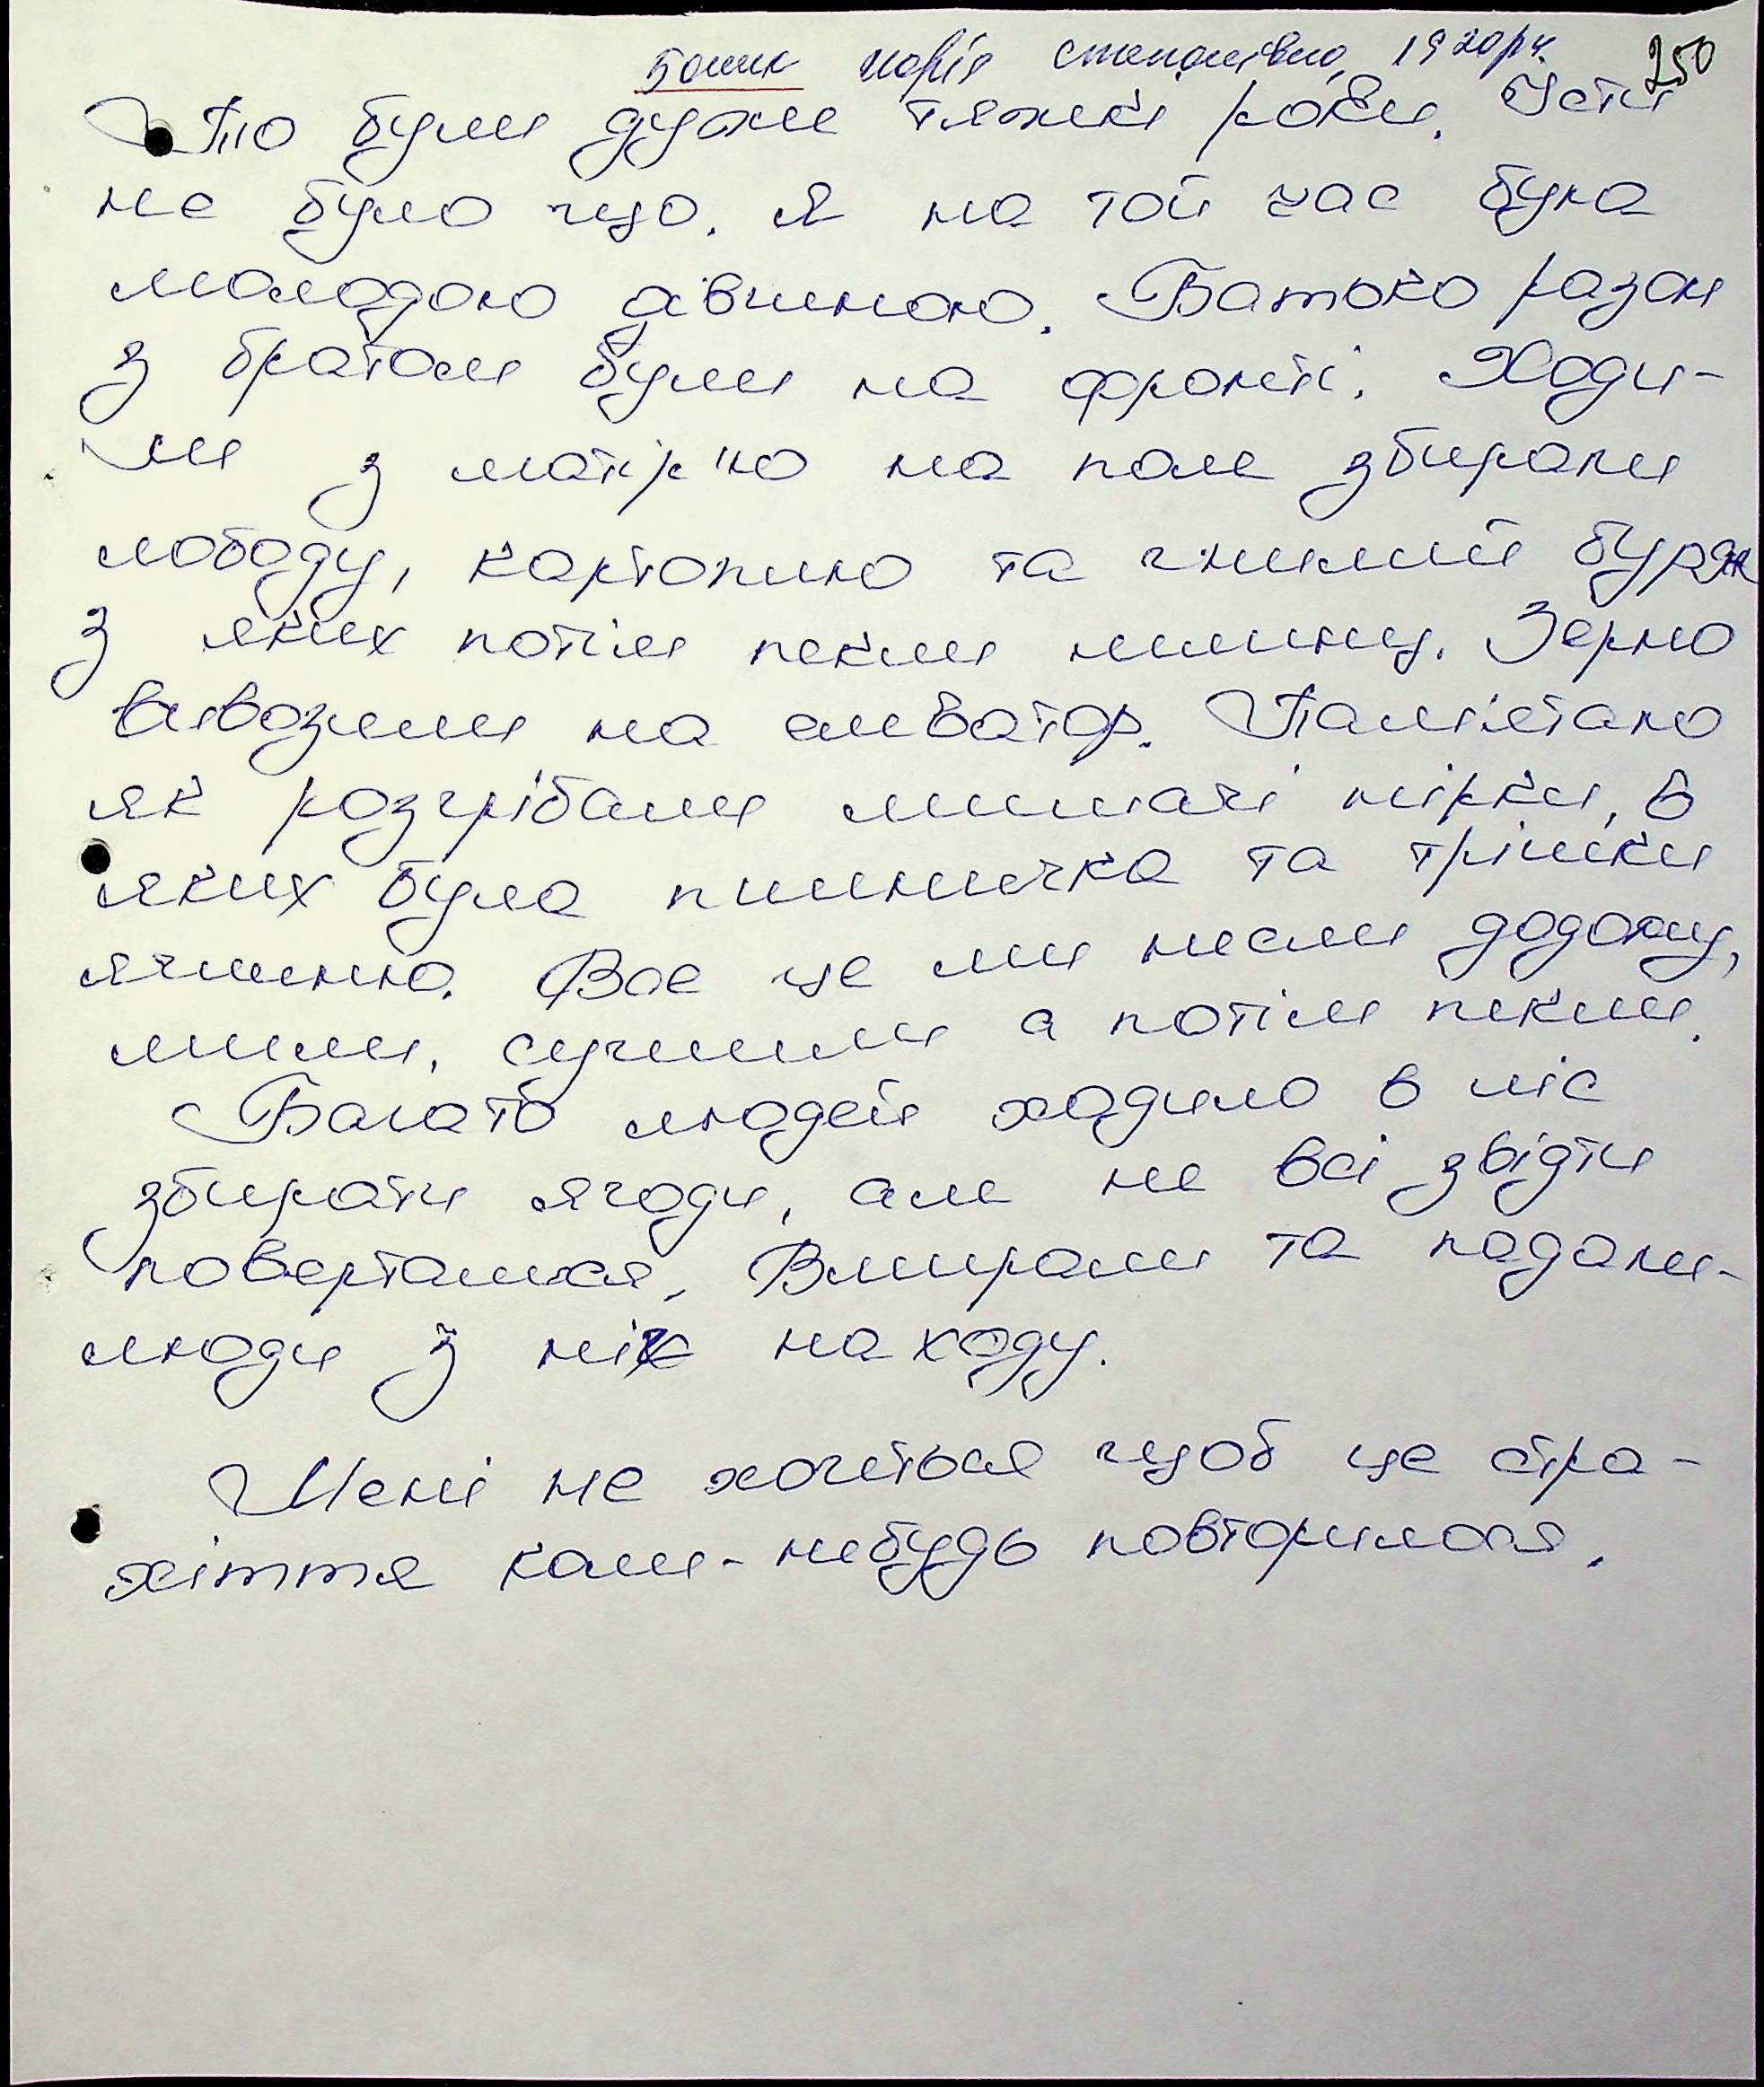 Марія Степанівна, 1920р.н. 250
То були дуже тяжкі роки. Їсти
не було що. Я на той час була
молодою дівиною. Батько разом
з братом були на фронті. Ходи-
ли з матір'ю на поле збирали
лободу, картоплю та гнилий буряк
з яких потім пекли млинці. Зерно
вивозили на елеватор. Пам'ятаю
як розгрібали мишачі нірки, в
яких була пшеничка та трішки
ячменю. Все це ми несли додому,
мили, сушили а потім пекли.
Багато людей ходило в ліс
збирати ягоди, але не всі звідти
поверталися. Вмирали та падали-
люди з ніг на ходу.
Мені не хочеться щоб це стра-
хіття коли-небудь повторилося.